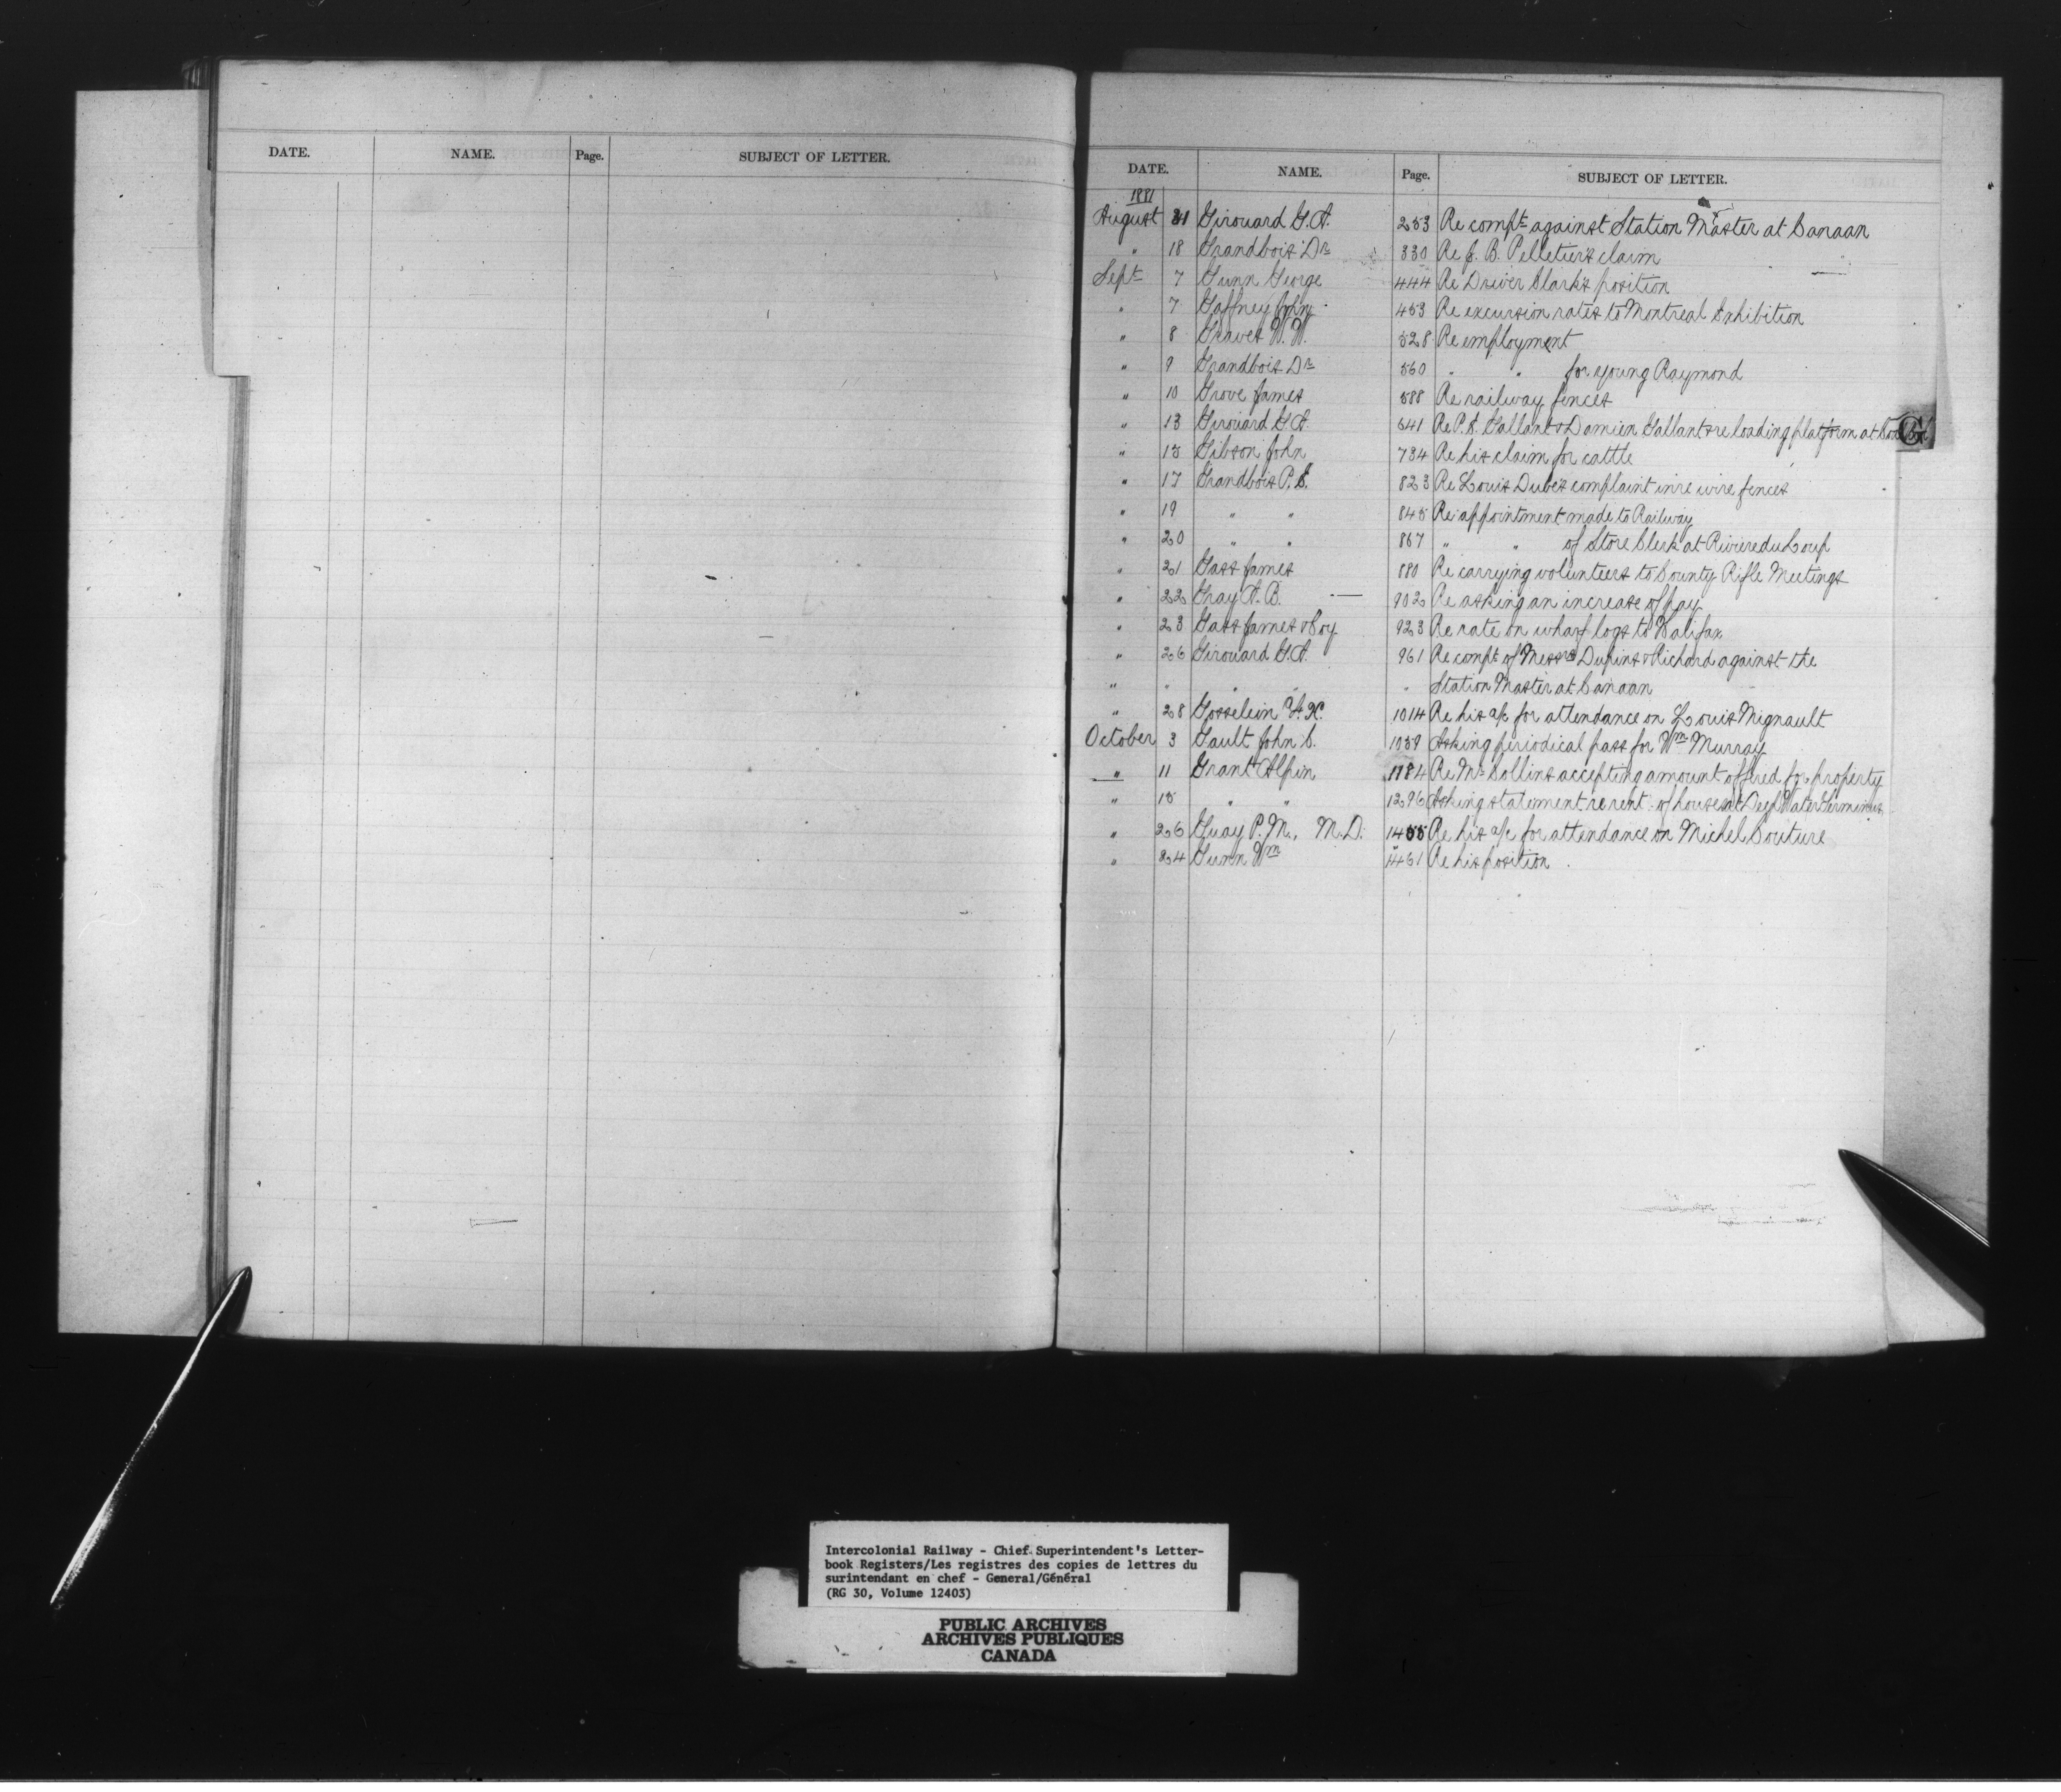 DATE. NAME. Page. SUBJECT OF LETTER.
DATE. NAME. Page. SUBJECT OF LETTER.
1881
August 31 Girouard G.A. 253 Re compt against Station Master at Canaan
" 18 Grandbois Dr 330 Re J. B. Pelletier's claim
Sept 7 Gunn George 444 Re Driver Clark's position
" 7 Gaffney John 453 Re excursion rates to Montreal Exhibition
" 8 Graves W. W. 528 Re employment
" 9 Grandbois Dr 560 " " for young Raymond
" 10 Grove James 588 Re railway fences
" 13 Girouard G.A. 641 Re P. S. Gallant & Damien Gallant re loading platform at
G
" 15 Gibson John 734 Re his claim for cattle
" 17 Grandbois P. E. 823 Re Louis Dube's complaint in re wire fences
" 19 " " 845 Re appointment made to Railway
" 20 " " 867 " " of Store Clerk at Riviere du Loup
" 21 Gass James 880 Re carrying volunteers to County Rifle Meetings
" 22 Gray A. B. — 902 Re asking an increase of pay
" 23 Gass James & Coy 923 Re rate on wharf logs to Halifax
" 26 Girouard G.A. 961 Re compt of Messrs Dupins & Richard against the
" " " " " Station Master at Canaan
" 28 Gosselin F. X. 1014 Re his a/c for attendance on Louis Mignault
October 3 Gault John C. 1059 Asking periodical pass for Wm Murray
" 11 Grant Alpin 1184 Re Mr Collins accepting amount offered for property
" 15 " " 1296 Asking statement re rent of houses at Deep Water Terminus
" 26 Guay P. M., M.D. 1455 Re his a/c for attendance on Michel Couture
" 24 Gunn Wm 1461 Re his position
Intercolonial Railway - Chief Superintendent's Letter-
book Registers/Les registres des copies de lettres du
surintendant en chef - General/Général
(RG 30, Volume 12403)
PUBLIC ARCHIVES
ARCHIVES PUBLIQUES
CANADA